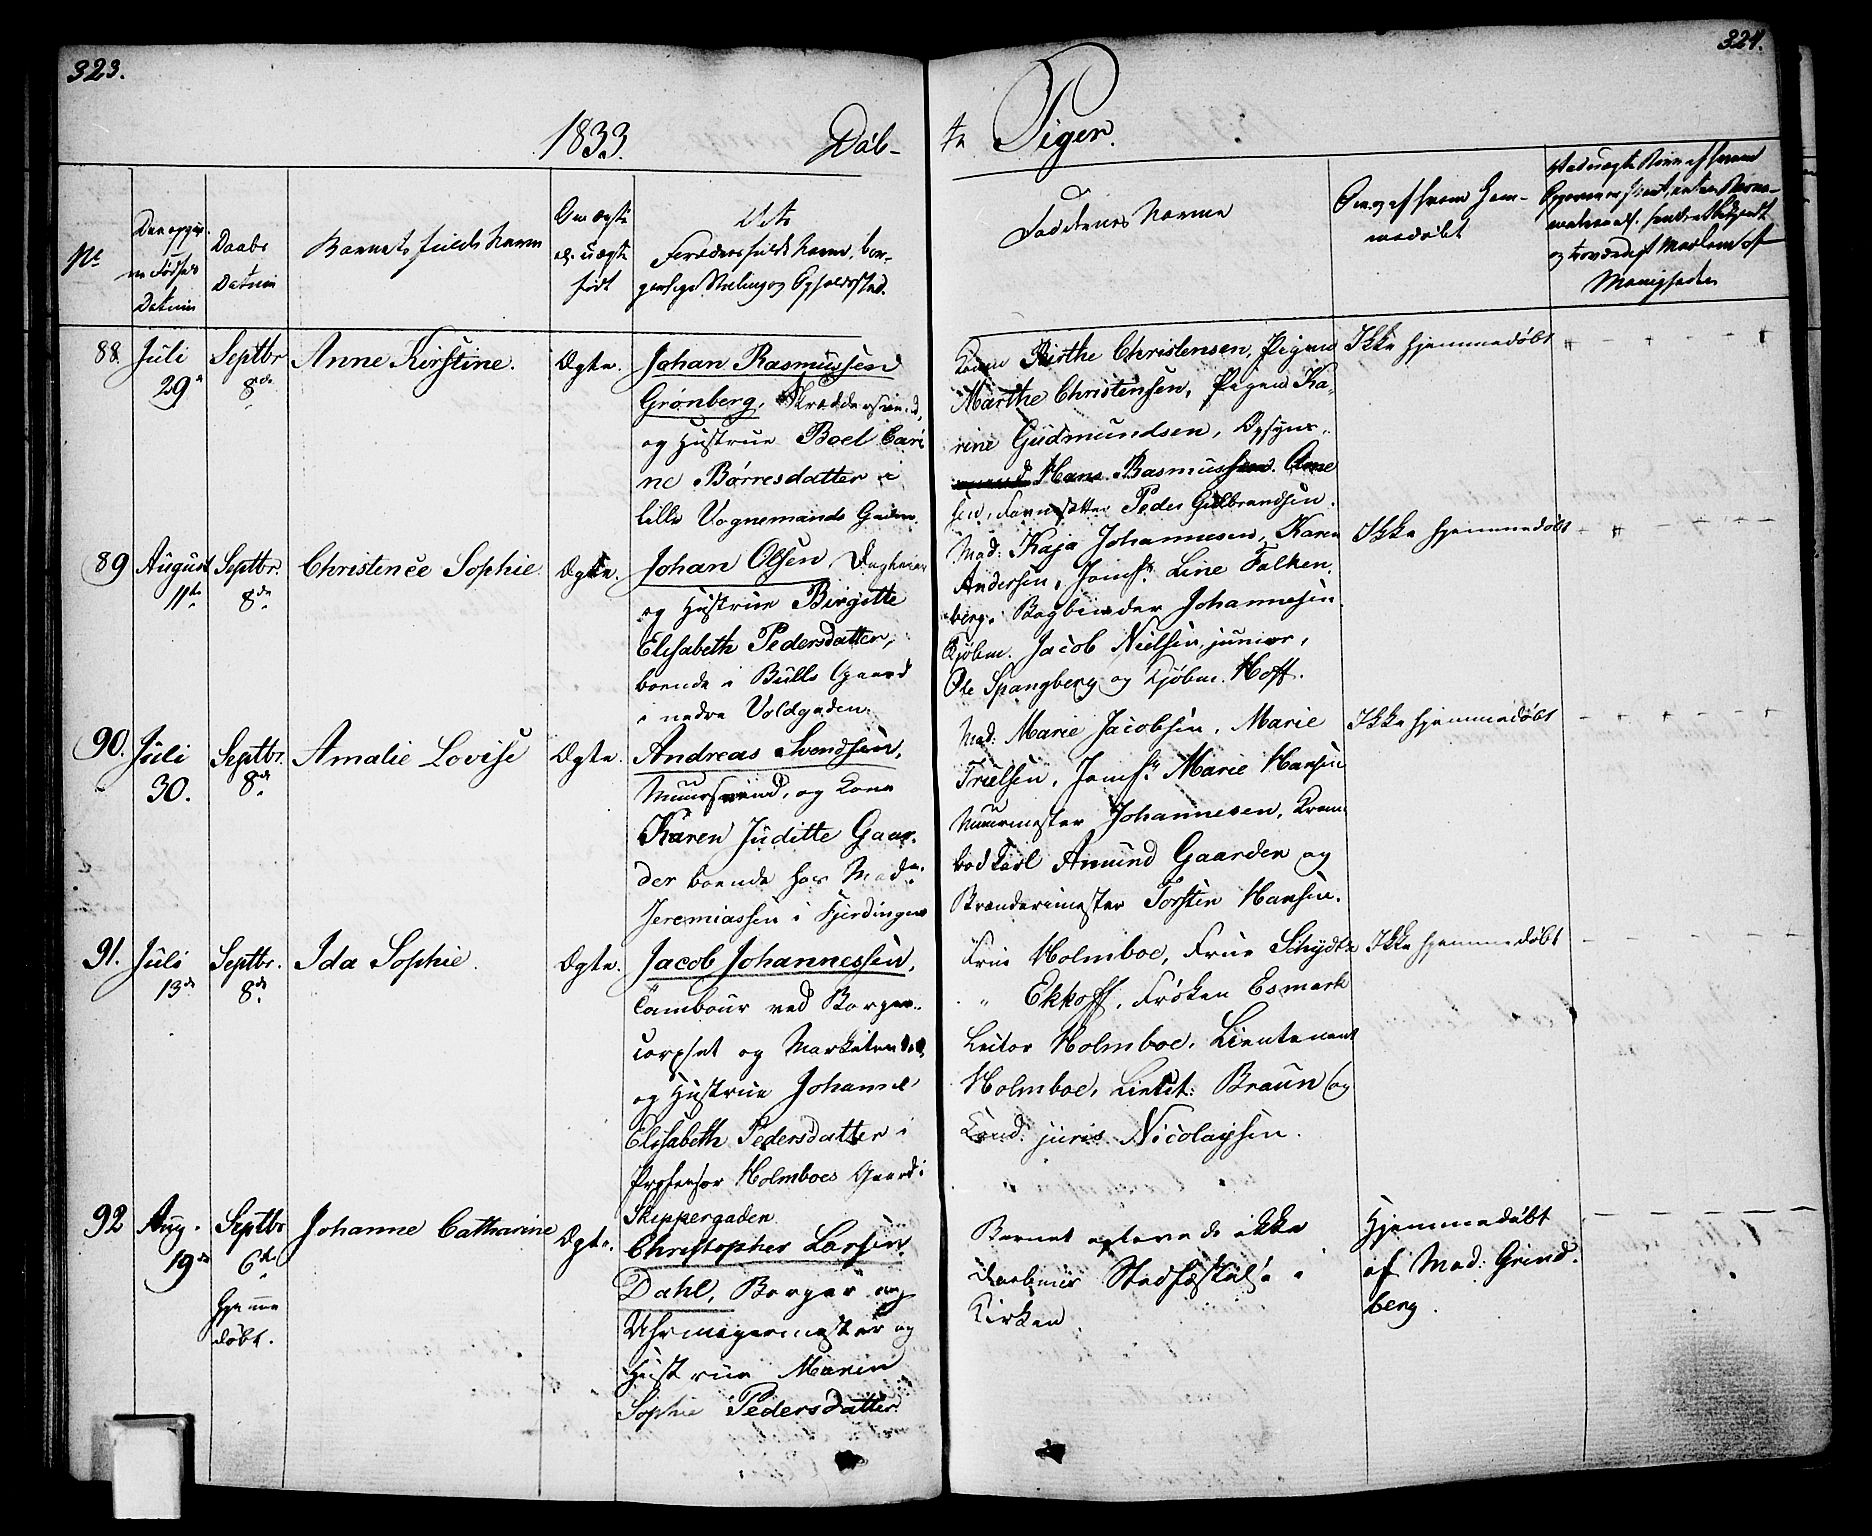 323.
324.
1833.
Døb-
te Piger.
No
Den opgiv-
ne Fødsels
Datum
Daabs
Datum
Barnets fulde Navn
Om ægte
el. uægte
født
Dets
Forældres fulde Navne, bor-
gerlige Stilling og Opholdssted.
Faddernes Navne
Om og af hvem hjem-
medøbt
88.
Juli
29
Septbr
8de
Anne Kirstine.
Ægte.
Johan Rasmussen
Grønberg, Skrædersvend,
og Hustrue Boel Cari
ne Børresdatter i
lille Vognmands Gaden.
Konen Birthe Christensen, Pigen
Marthe Christensen, Pigen Ka-
rine Gudmundsen, Opsyns-
mand Hans Rasmussen. Arne
sen, Peder Gulbrandsen.
Ikke hjemmedøbt
89
August
11te
Septbr.
8de
Christence Sophie.
Ægte.
Johan Olsen,
og Hustrue Birgitte
Elisabeth Pedersdatter,
boende i Bulls Gaard
i nedre Voldgaden.
Mad: Kaja Johannesen, Karen
Andersen, Jomfr. Line Falken
berg. Bogbinder Johannesen
Kjøbm. Jacob Nielsen junior,
Ole Spangberg og Kjøbm. Hoff.
Ikke hjemmedøbt
90.
Juli
30.
Septbr.
8de
Amalie Lovise
Ægte.
Andreas Svendsen,
Muursvend, og Kone
Karen Juditte Gaar-
der boende hos Mad:
Jeremiassen i Fjerdingen
Mad: Marie Jacobsen, Marie
Truelsen, Jomfr. Marie Hansen
Muurmester Johannesen,
Amund Gaarden og
Brænderimester Torsten Hansen.
Ikke hjemmedøbt
91.
Juli
13de
Septbr.
8de
Ida Sophie.
Ægte.
Jacob Johannessen,
Tambour ved Borger-
corpset og Marketender,
og Hustrue Johanne
Elisabeth Pedersdatter i
Professor Holmboes Gaard i
Skippergaden
Frue Holmboe, Frue Schydtz
" Ekkoff, Frøken Esmark
Lector Holmboe, Lieutenant
Holmboe, Lieut: Braun og
Cand. juris Nicolaysen.
Ikke hjemmedøbt
92
Aug.
19de
Septbr
6te
Hjemme
døbt.
Johanne Catharine
Ægte.
Christopher Larsen
Dahl, Borger og
Uhrmagermester og
Hustrue Maren
Sophie Pedersdatter
Barnet oplevede ikke
Daabens Stadfæstelse i
Kirken
Hjemmedøbt
af Mad: Grind
berg.